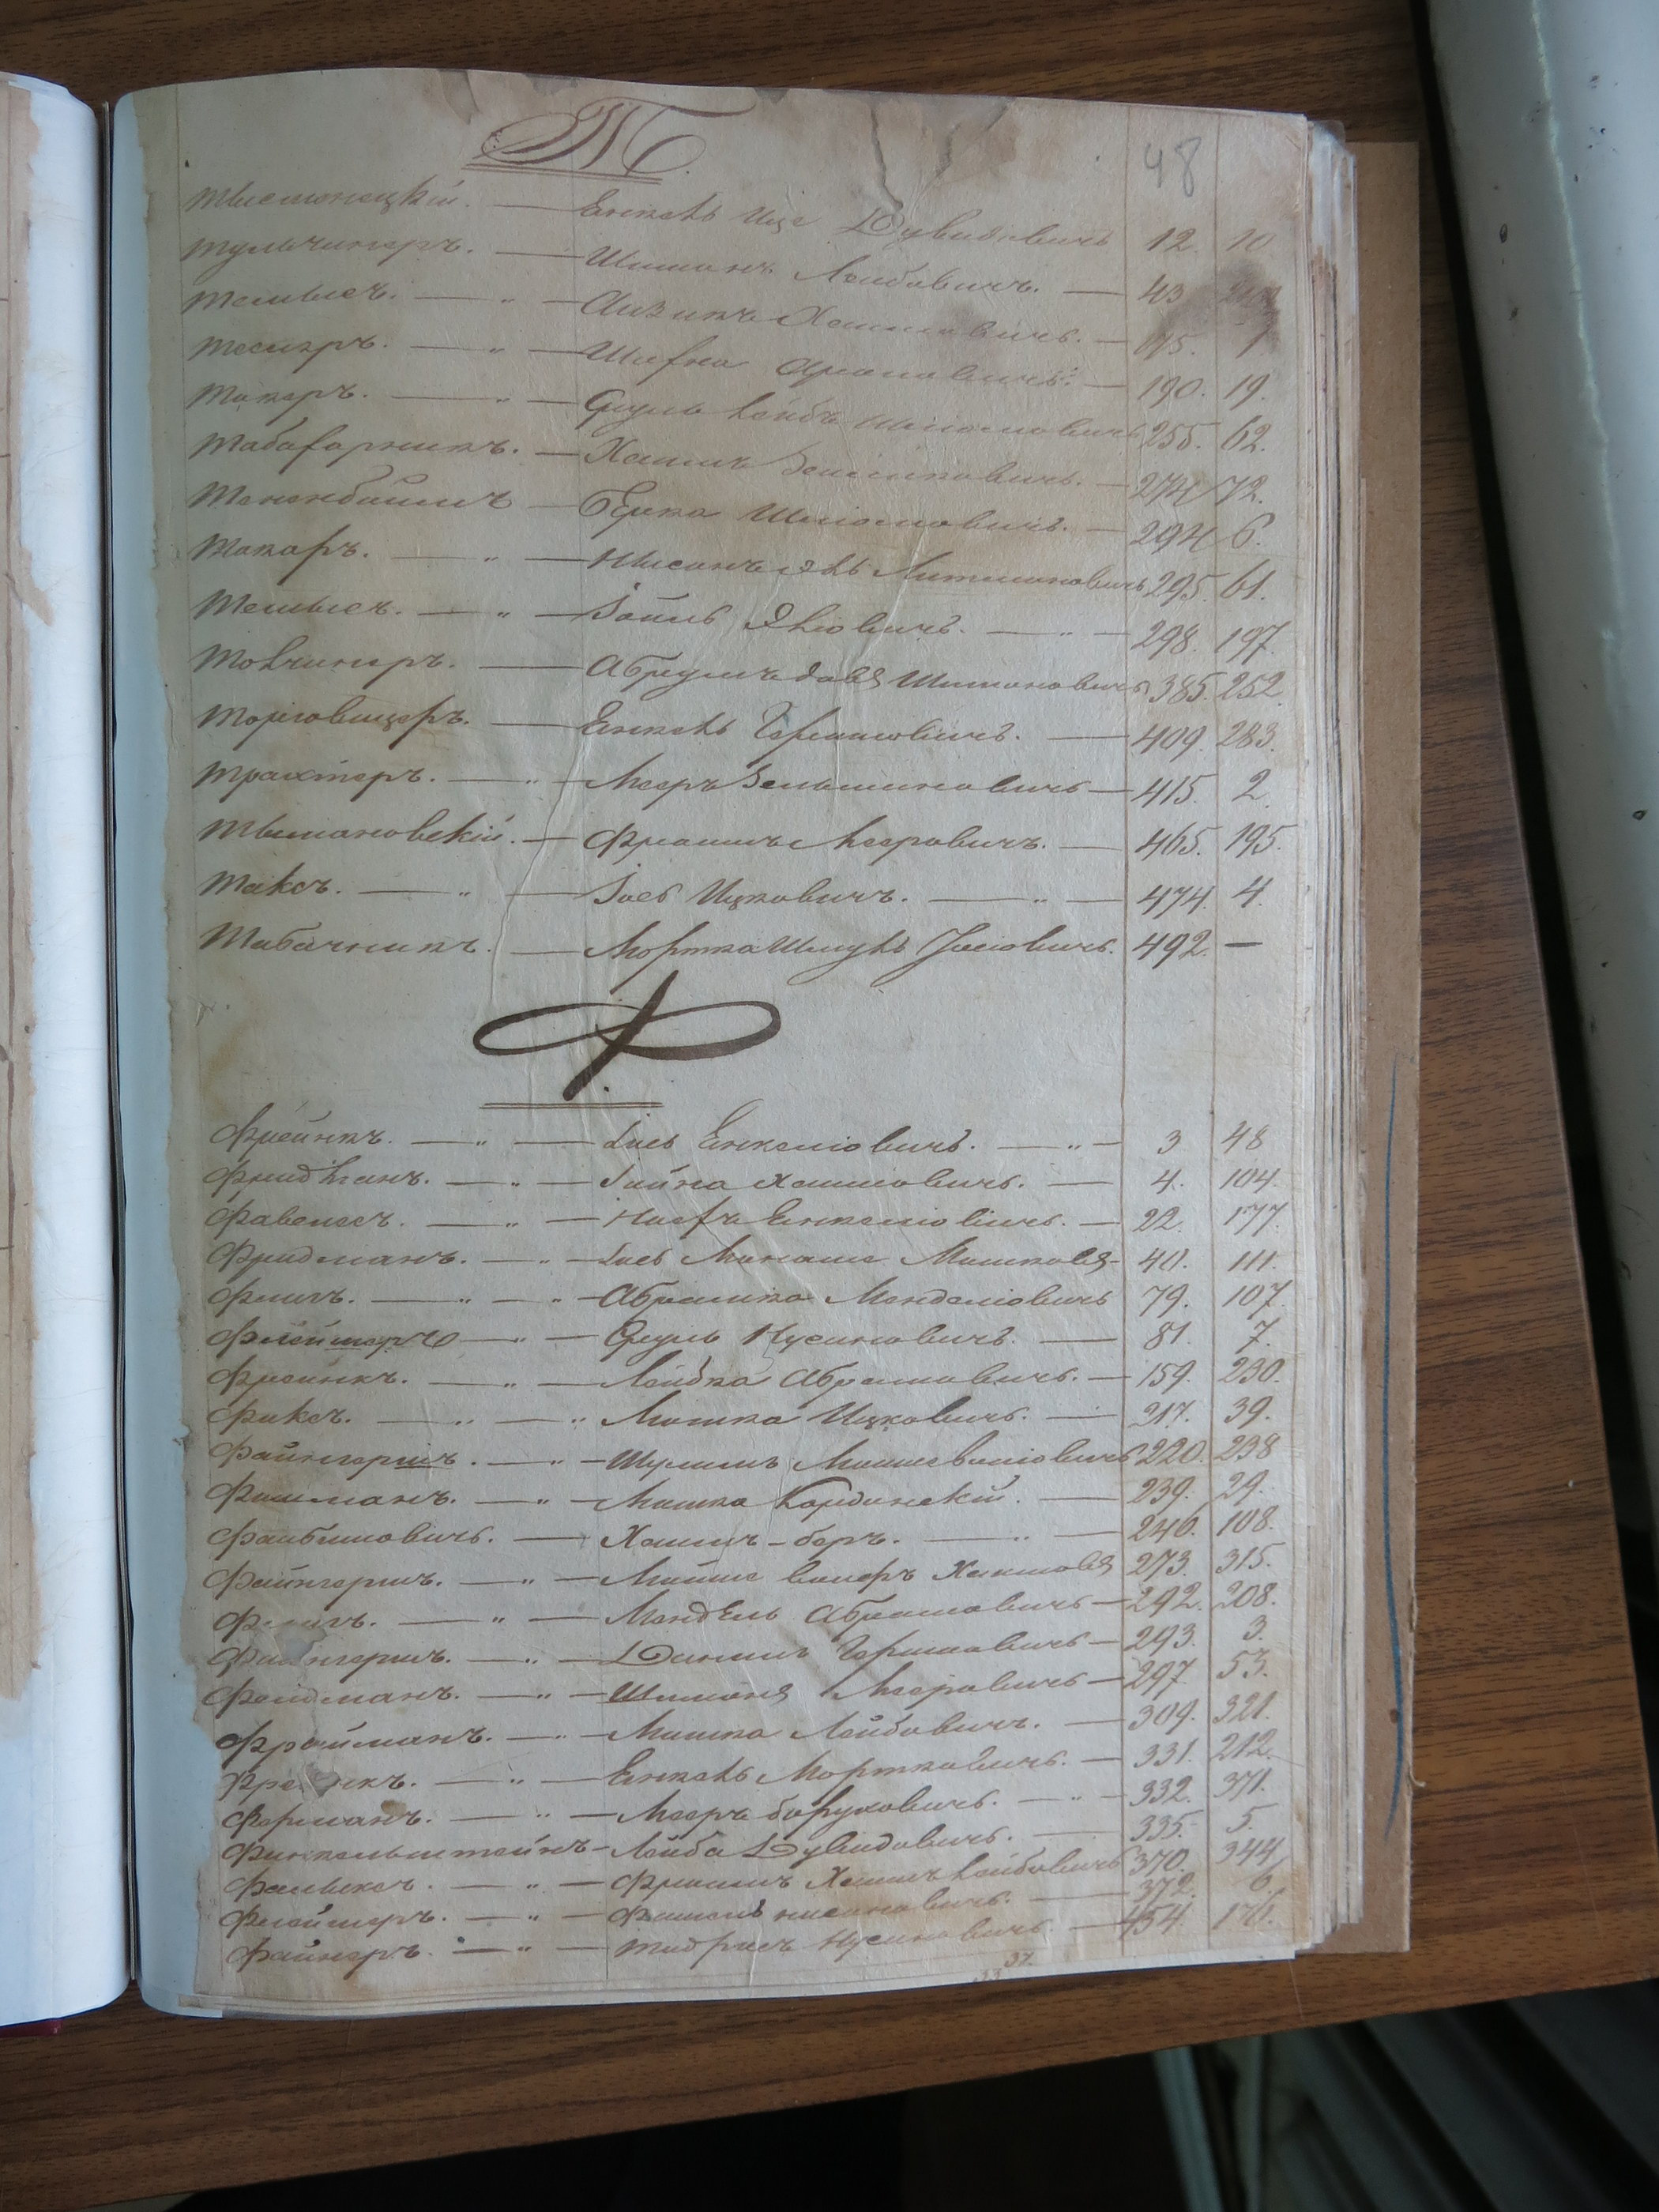 Т.
48
Тысменецкій. — Енкель Ице Дувидовичъ 12. 10
Тульчинеръ. — Шимонъ Лейбовичъ. — 43
Темысъ. — " — Айзикъ Хаимовичъ. — 175. 1
Тесперъ. — " — Шифка Ароновичъ. — 190. 19.
Токеръ. — " — Сруль Лейбъ Шліомовичъ 255. 62.
Табафарникъ. — Хаимъ Зейликовичъ. — 274 72.
Тененбаимъ — Берко Шліомовичъ. — 294 6.
Токаръ. — " — Нысонъ Эль Литмановичъ 295. 61.
Темысъ. — " — Зойль Эліовичъ. — " — 298. 197.
Товчинеръ. — Абрумъ Давд Шимоновичъ 385. 252.
Торговицеръ. — Енкель Гершковичъ. — 409. 283.
Трахтеръ. — " — Мееръ Зельмановичъ — 415. 2.
Тымановскій. — Фроимъ Мееровичъ. — 465. 195.
Таксъ. — " — Іось Ицковичъ. — " — 474. 4.
Табачникъ. — Мортко Шмуль Іосіовичъ. 492. —
Ф.
Фрейнкъ. — " — Іось Енкеліовичъ. — " — 3 48
Фридманъ. — " — Іойна Хаимовичъ. — 4. 104.
Фавелесъ. — " — Іосфъ Енкеліовичъ. — 22. 177.
Фридманъ. — " — Іось Монаше Мошковд — 40. 111.
Флигъ. — " — " — Абрамко Менделіовичъ 79. 107.
Флейшеръ — " — Сруль Нусиновичъ. — 81. 7.
Фреинкъ. — " — Лейбко Абрамовичъ. — 159. 230.
Фиксъ. — " — " Мошко Ицковичъ. — 217. 39.
Файнгершъ. — " — Шулимъ Мошеволіовичъ 220. 238
Фишманъ. — " — Мошко Кординскій. — 239. 29.
Фаибишовичъ. — Хаимъ-беръ. — " — 246. 108.
Файнгершъ. — " — Мойше Волфъ Хаимовд 273. 315.
Флигъ. — " — Мендель Абрамовичъ — 292. 308.
Файнгершъ. — " — Даниль Гершковичъ — 293. 3.
Фельдманъ. — " — Шимонд Мееровичъ — 297. 53.
Фройманъ. — " — Мошко Лейбовичъ. — 309. 321.
Енкель Мортковичъ. — 331. 212.
Ферманъ. — " — Мееръ Боруховичъ. — " — 332. 371.
Финкельштейнъ — Лейба Дувидовичъ. — 335. 5.
Фроимъ Хаимъ Лейбовичъ 370. 344
Флейшеръ. — " — Фишель Нисиновичъ. — 372. 6.
Файнеръ. — " — Тодрисъ Нусиновичъ. — 454. 176.
37.